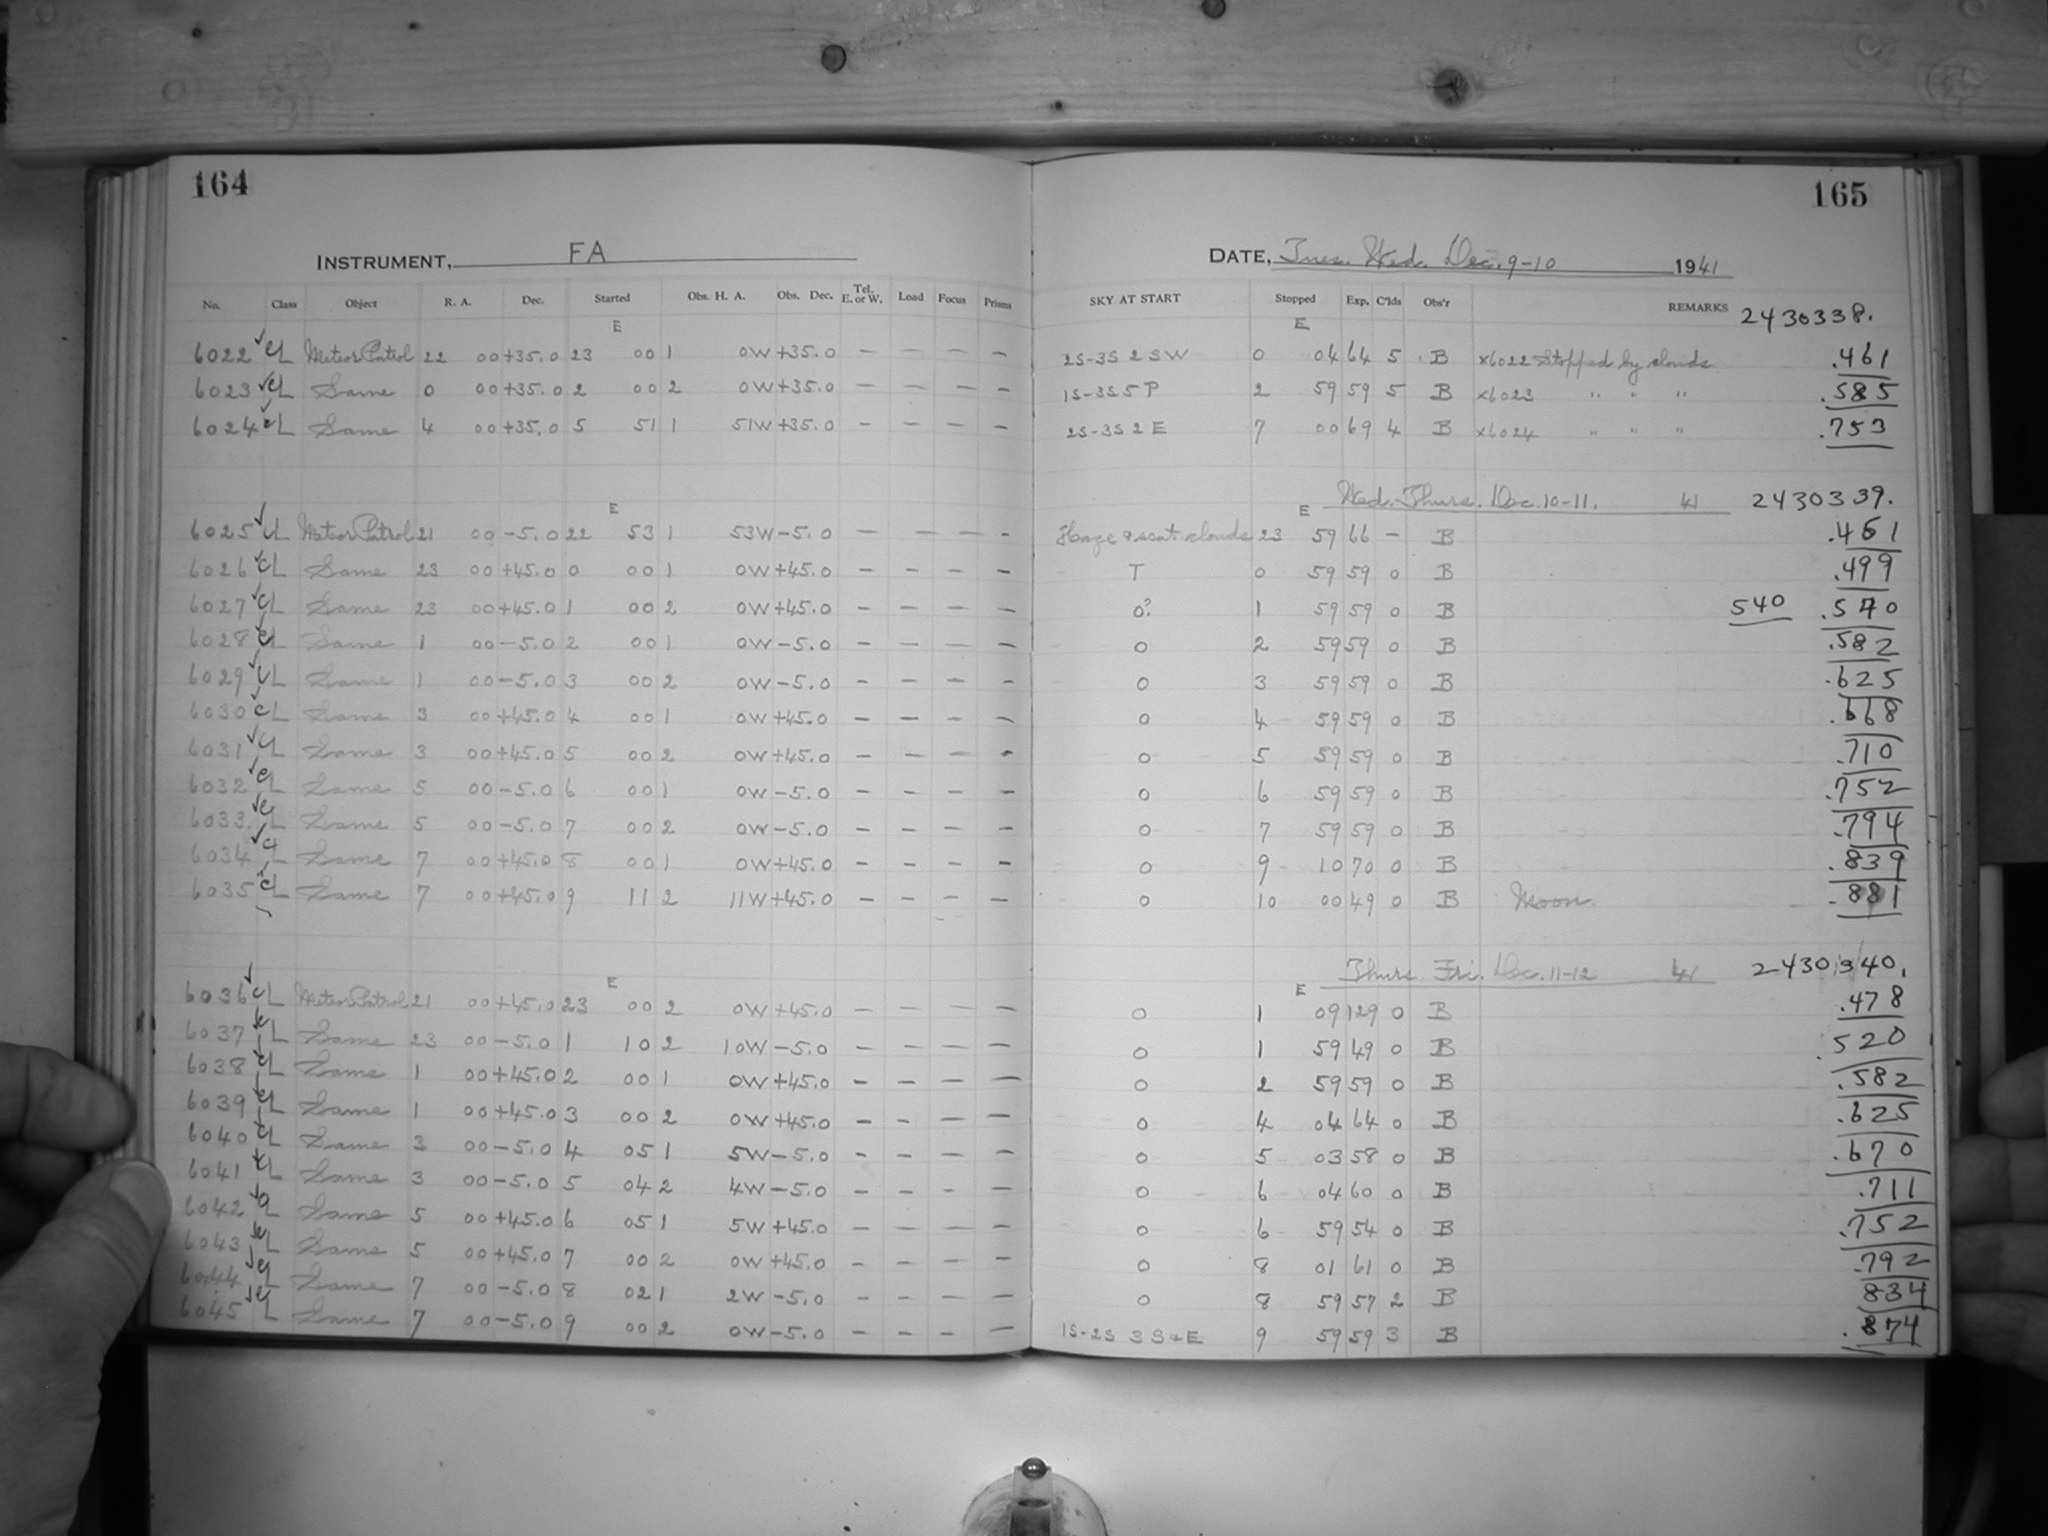 164
165
INSTRUMENT, FA
DATE, Tues. Wed. Dec. 9-10 1941
No. Class Object R. A. Dec. Started Obs. H. A. Obs. Dec. Tel. E. or W. Load Focus Prisms SKY AT START Stopped Exp. C'lds Obs'r REMARKS 2430338.
E E
6022 ✓ CL Meteor Patrol 22 00 +35.0 23 00 1 0W +35.0 — — — — 2S-3S 2 SW 0 04 64 5 B x6022 Stopped by clouds .461
6023 ✓ CL Same 0 00 +35.0 2 00 2 0W +35.0 — — — — 1S-3S 5 P 2 59 59 5 B x6023 " " " .585
6024 ✓ CL Same 4 00 +35.0 5 51 1 51W +35.0 — — — — 2S-3S 2 E 7 00 69 4 B x6024 " " " .753
E E Wed. Thurs. Dec. 10-11. 41 2430339.
6025 ✓ CL Meteor Patrol 21 00 -5.0 22 53 1 53W -5.0 — — — — Haze & scat. clouds 23 59 66 — B .461
6026 ✓ CL Same 23 00 +45.0 0 00 1 0W +45.0 — — — — T 0 59 59 0 B .499
6027 ✓ CL Same 23 00 +45.0 1 00 2 0W +45.0 — — — — 0? 1 59 59 0 B 540 .570
6028 ✓ CL Same 1 00 -5.0 2 00 1 0W -5.0 — — — — 0 2 59 59 0 B .582
6029 ✓ CL Same 1 00 -5.0 3 00 2 0W -5.0 — — — — 0 3 59 59 0 B .625
6030 ✓ CL Same 3 00 +45.0 4 00 1 0W +45.0 — — — — 0 4 59 59 0 B .668
6031 ✓ CL Same 3 00 +45.0 5 00 2 0W +45.0 — — — — 0 5 59 59 0 B .710
6032 ✓ CL Same 5 00 -5.0 6 00 1 0W -5.0 — — — — 0 6 59 59 0 B .752
6033 ✓ CL Same 5 00 -5.0 7 00 2 0W -5.0 — — — — 0 7 59 59 0 B .794
6034 ✓ CL Same 7 00 +45.0 8 00 1 0W +45.0 — — — — 0 9 10 70 0 B .839
6035 ✓ CL Same 7 00 +45.0 9 11 2 11W +45.0 — — — — 0 10 00 49 0 B Moon .881
E E Thurs. Fri. Dec. 11-12 41 2430340.
6036 ✓ CL Meteor Patrol 21 00 +45.0 23 00 2 0W +45.0 — — — — 0 1 09 129 0 B .478
6037 ✓ CL Same 23 00 -5.0 1 10 2 10W -5.0 — — — — 0 1 59 49 0 B .520
6038 ✓ CL Same 1 00 +45.0 2 00 1 0W +45.0 — — — — 0 2 59 59 0 B .582
6039 ✓ CL Same 1 00 +45.0 3 00 2 0W +45.0 — — — — 0 4 04 64 0 B .625
6040 ✓ CL Same 3 00 -5.0 4 05 1 5W -5.0 — — — — 0 5 03 58 0 B .670
6041 ✓ CL Same 3 00 -5.0 5 04 2 4W -5.0 — — — — 0 6 04 60 0 B .711
6042 ✓ CL Same 5 00 +45.0 6 05 1 5W +45.0 — — — — 0 6 59 54 0 B .752
6043 ✓ CL Same 5 00 +45.0 7 00 2 0W +45.0 — — — — 0 8 01 61 0 B .792
6044 ✓ CL Same 7 00 -5.0 8 02 1 2W -5.0 — — — — 0 8 59 57 2 B 834
6045 ✓ CL Same 7 00 -5.0 9 00 2 0W -5.0 — — — — 1S-2S 3 S&E 9 59 59 3 B .874